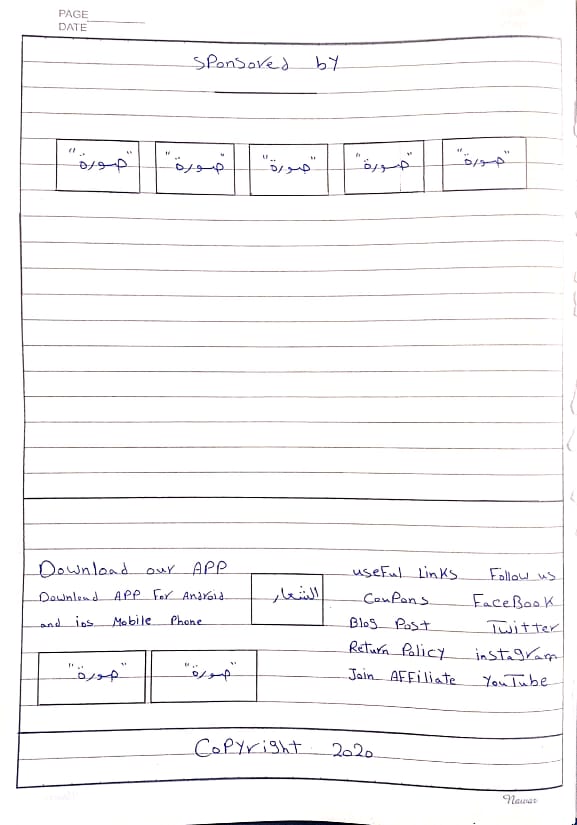 PAGE
DATE
Sponsored by
"صورة" "صورة" "صورة" "صورة" "صورة"
Download our APP
Downlead APP For Android
and ios Mobile Phone
"صورة" "صورة"
الشعار
useful Links
Coupons
Blog Post
Return Policy
Join AFFiliate
Follow us
FaceBook
Twitter
instagram
YouTube
Copyright 2020
Nawar